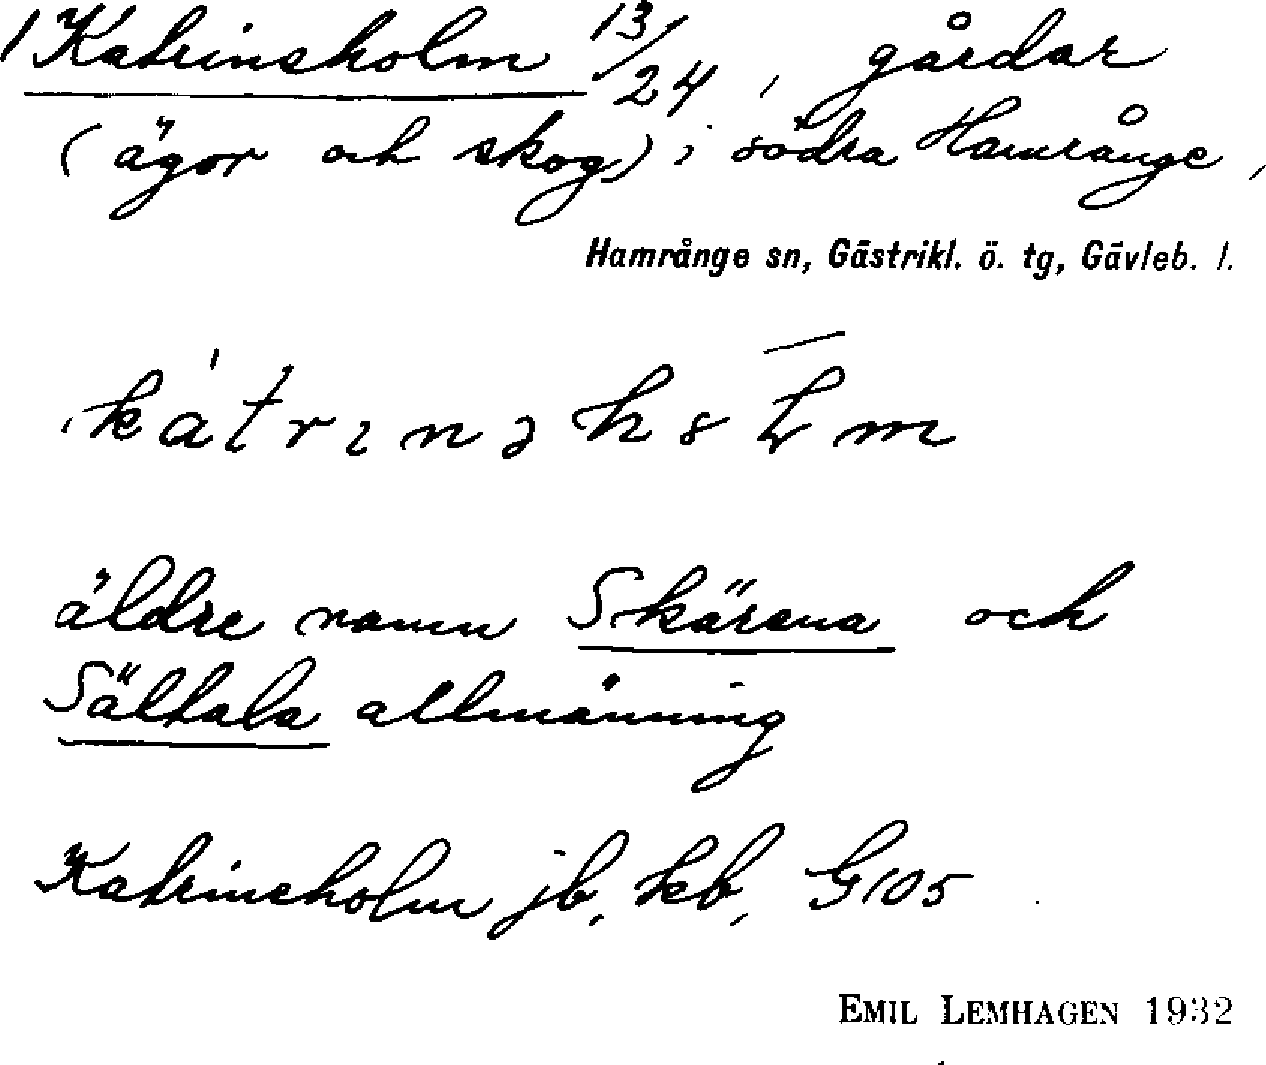 1 Katrinsholm 13/24, gårdar
(ägor och skog) i södra Hamrånge,
Hamrånge sn, Gästrikl. ö. tg, Gävleb. l.
äldre namn Skärena och
Sältala allmänning
Katrineholm jb, kb, G105
EMIL LEMHAGEN 1932